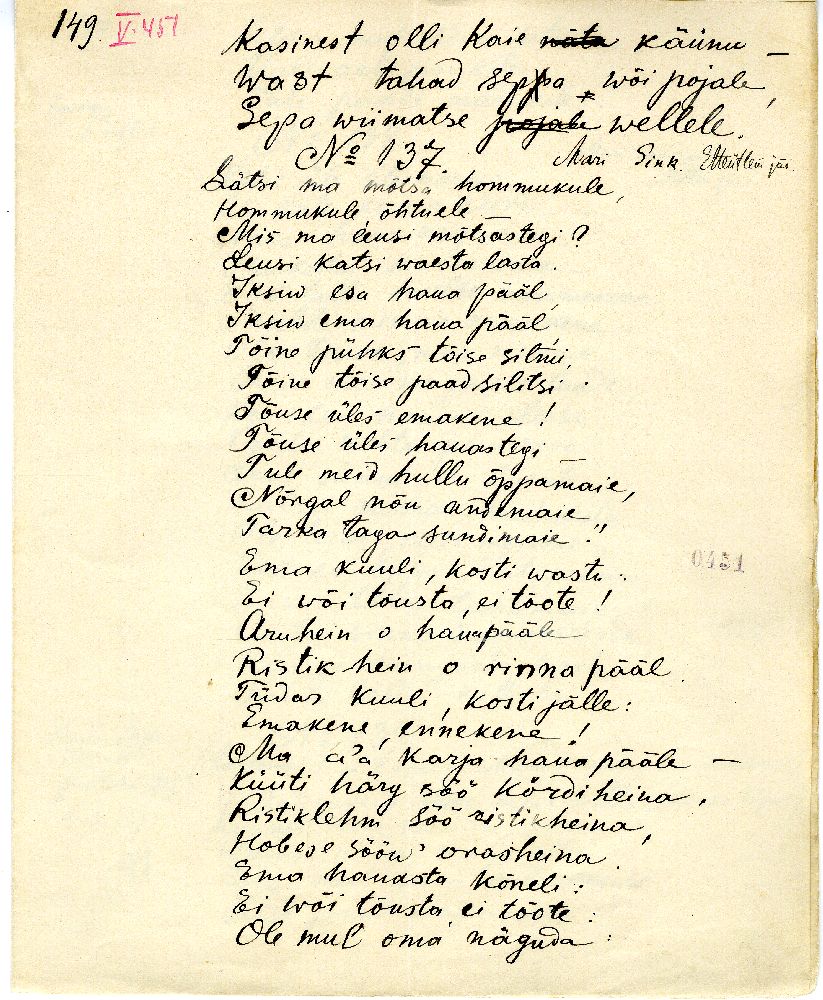 149. V. 451
Kasinest olli Kaie näta käünu –
Wast tahad seppa, wõi pojale,
Sepa wiimatse pojale wellele.
No 137. Mari Sink.
Lätsi ma mõtsa hommukule,
Hommukule, õhtuele –
Mis ma leusi mõtsastegi?
Leusi katsi waesta lasta.
Iksiw esa haua pääl,
Iksiw ema haua pääl,
Tõine pühks tõise silmi,
Tõine tõise paad silitsi.
Tõuse üles emakene!
Tõuse üles hauastegi –
Tule meid hullu õppamaie,
Nõrgal nõu andemaie,
Tarka taga sundimaie!"
Ema kuuli, kosti wastu:
Ei wõi tõusta, ei tõote!
Aruhein o hauapääle
Ristikhein o rinna pääl.
Tüdar kuuli, kosti jälle:
Emakene, ennekene!
Ma a'a karja haua pääle –
Küüti härg söö kõrdiheina,
Ristiklehm söö ristikheina,
Hobese söön' orasheina.
Ema hauasta kõneli:
Ei wõi tõusta, ei tõote:
Ole mul oma näguda:
0451